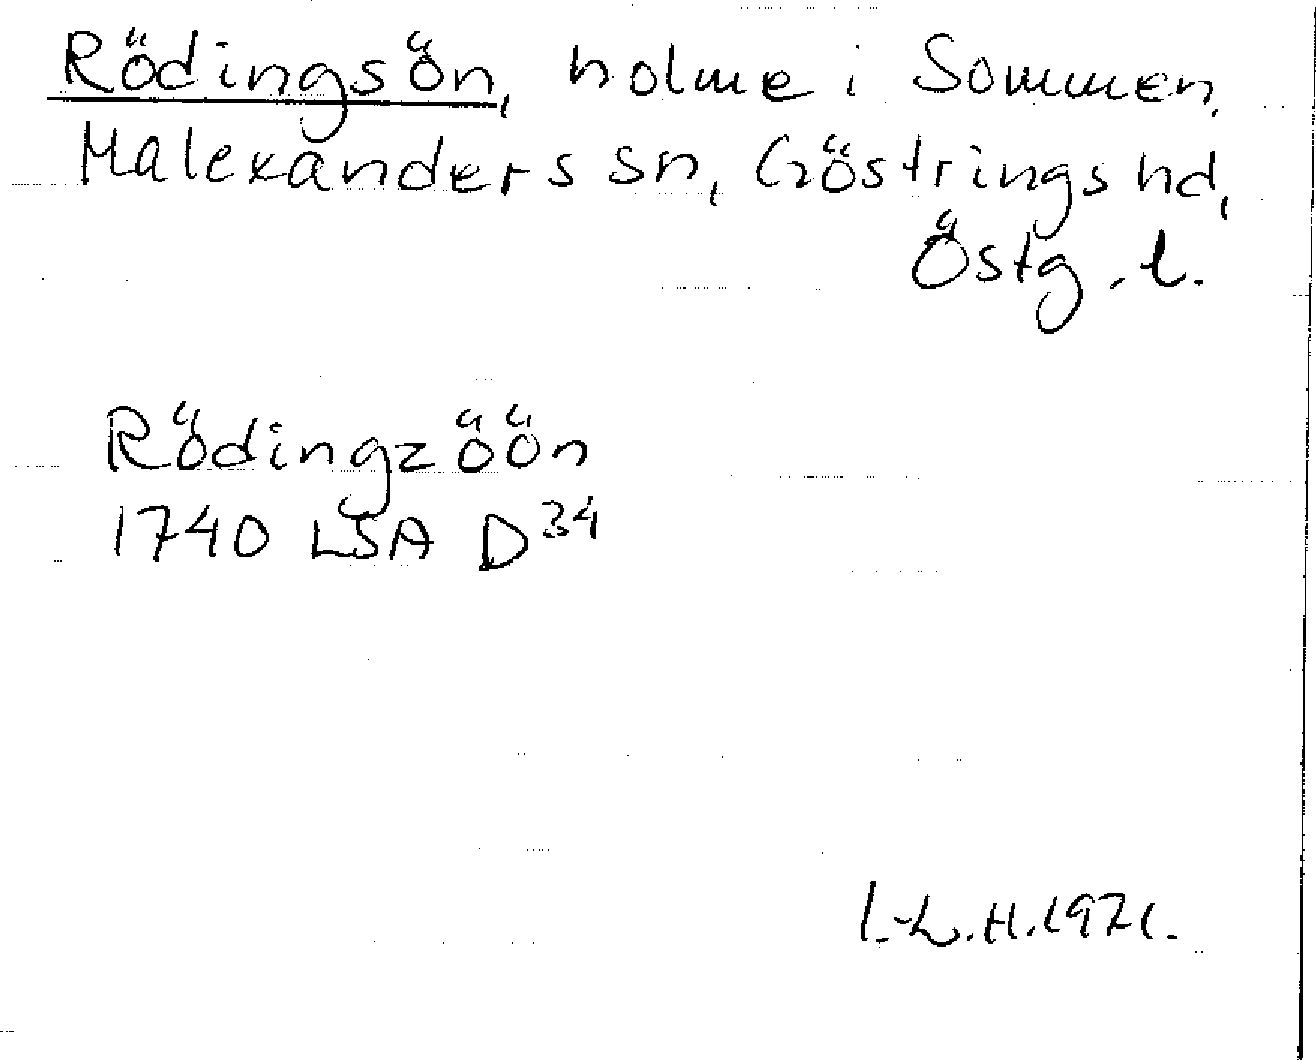 Rödingsön, holme i Sommen,
Malexanders sn, Göstrings hd,
Östg. l.
Rödingzöön
1740 LSA D34
I.-L.H.1971.